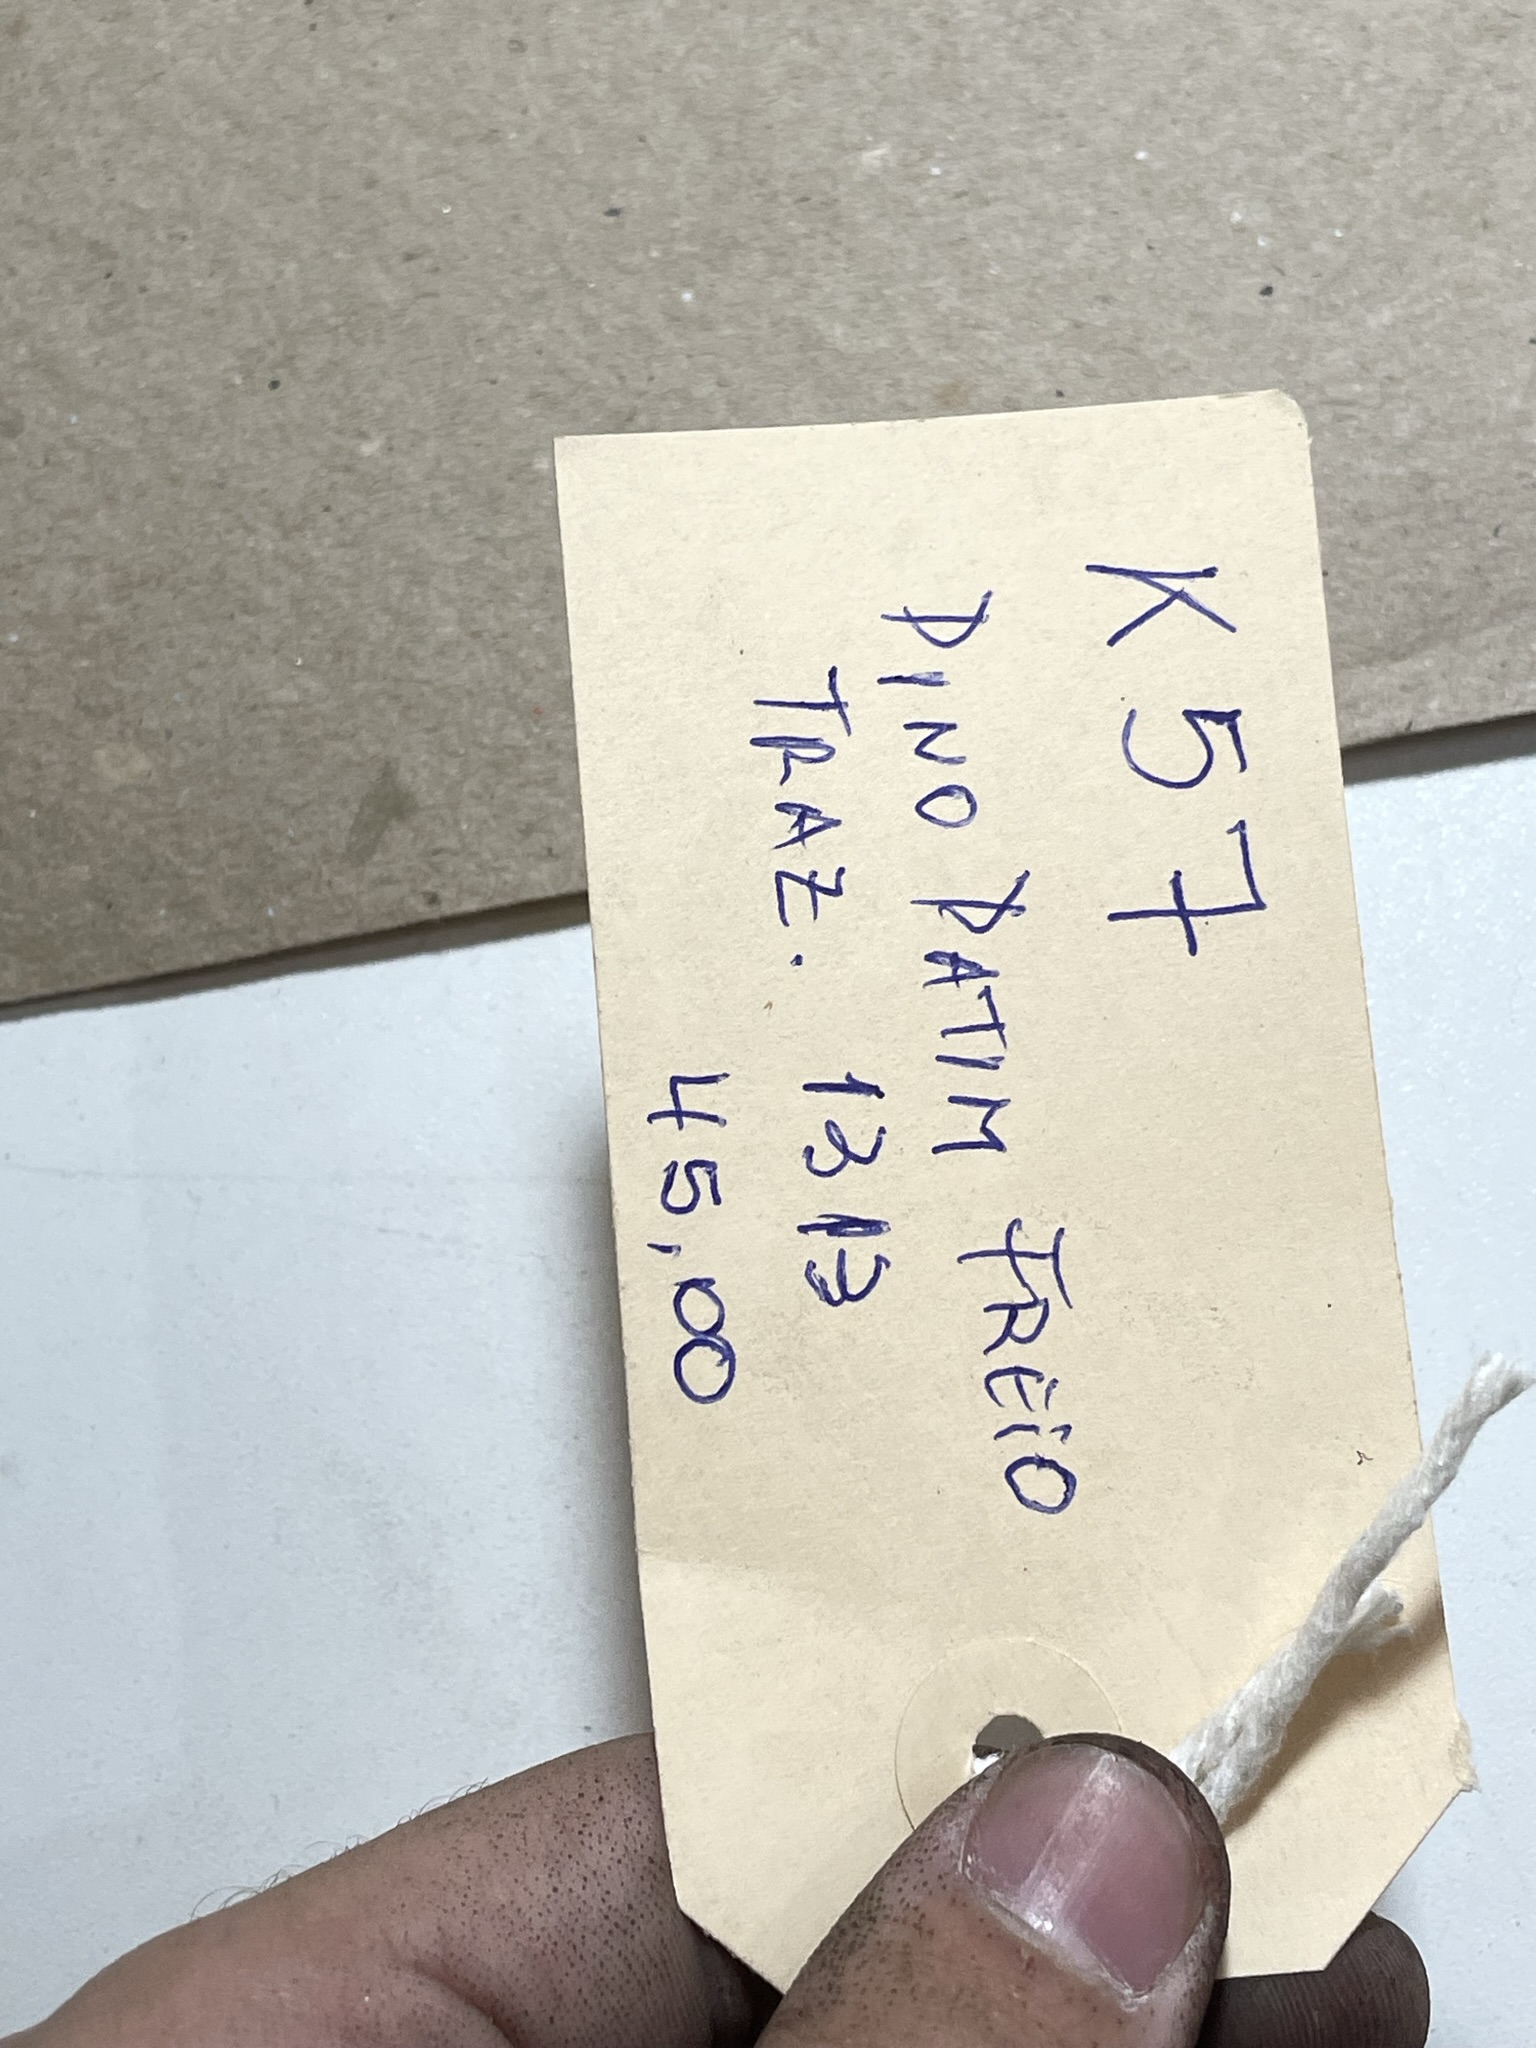 K57
PINO PATIM FREIO
TRAZ. 1313
45,00